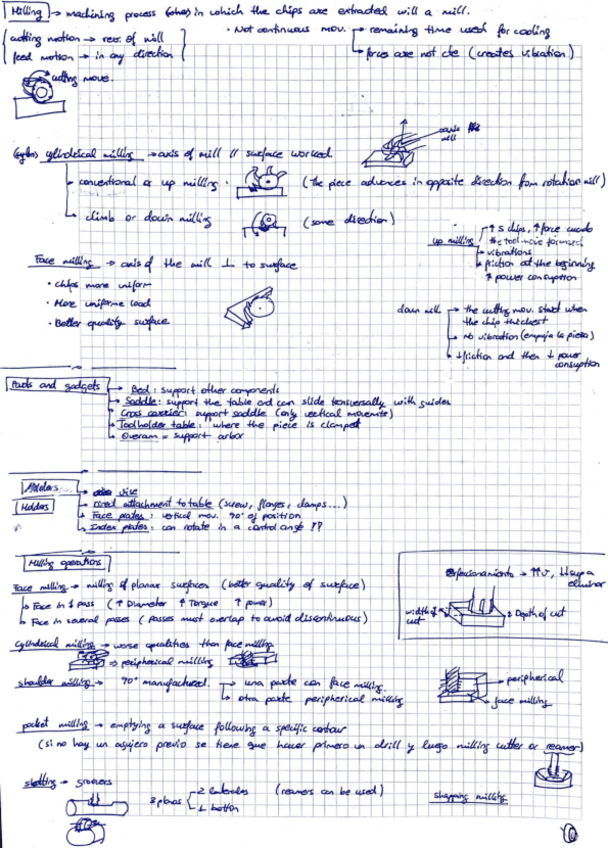 Milling → machining process in which the chips are extracted will a mill.
cutting motion → rev. of mill
feed motion → in any direction
• Not continuous mov.
→ remaining time used for cooling
→ forces are not cte (creates vibration)
cutting move.
cylindrical milling → axis of mill // surface worked.
axis
mill
conventional or up milling • (the piece advances in opposite direction from rotation mill)
climb or down milling (same direction)
up milling
→ ↑ s chips, ↑ force cuando
the tool move forward
→ vibrations
→ friction at the beginning
↑ power consuption
Face milling → axis of the mill ⊥ to surface
• Chips more uniform
• More uniforme load
• Better quality surface
down mill → the cutting mov. start when
the chip thickest
→ No vibration (empuja la pieza)
→ ↓ friction and then ↓ power
consuption
Parts and gadgets
→ Bed: support other components
→ Saddle: support the table and can slide tansversally with guides
→ Cross carrier: support saddle (only vertical movemite)
→ Toolholder table: where the piece is clamped
→ Overarm = support arbor
Holders
→ vise
→ Direct attachment to table (screw, flanges, clamps...)
→ Face plates: vertical mov. 90° of position
→ Index plates: can rotate in a control angle ??
Milling operations
Face milling → milling of planar surfaces (better quality of surface)
→ Face in 1 pass (↑ Diameter ↑ Torque ↑ power)
→ Face in several passes (passes must overlap to avoid discontinuous)
→ ↑↑v, ↓↓ sup a
eliminar
width of cut
Depth of cut
Cylindrical milling → worse qualities then face milling
⇒ peripherical milling
shoulder milling → 90° manufactured.
→ una parte con face milling
→ otra parte peripherical milling
→ peripherical
→ face milling
pocket milling → emptying a surface following a specific contour
(si no hay un agujero previo se tiene que hacer primero un drill y luego milling cutter or reamer)
slotting → grooves
3 planos
2 laterales
1 bottom
(reamers can be used)
shapping milling